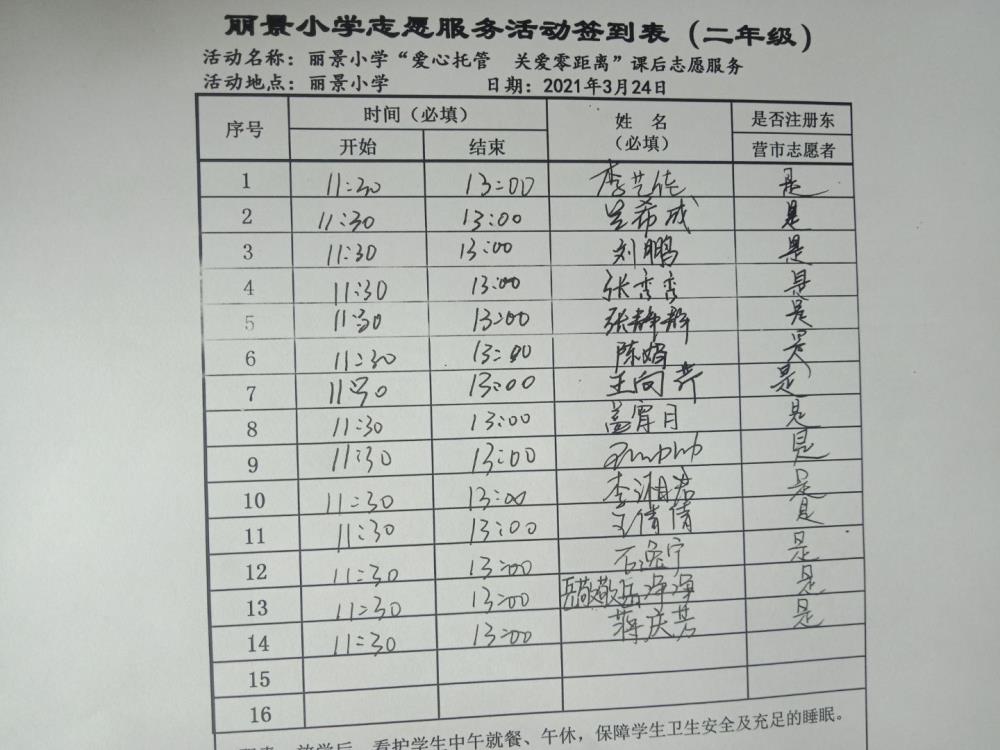 丽景小学志愿服务活动签到表（二年级）
活动名称：丽景小学“爱心托管 关爱零距离”课后志愿服务
活动地点：丽景小学 日期：2021年3月24日
序号 时间（必填） 姓 名 是否注册东
开始 结束 （必填） 营市志愿者
1 11:30 13:00 李艺佳 是
2 11:30 13:00 吴希成 是
3 11:30 13:00 刘鹏 是
4 11:30 13:00 张 是
5 11:30 13:00 张静静 是
6 11:30 13:00 陈娟 是
7 11:30 13:00 王向芹 是
8 11:30 13:00 盖宵月 是
9 11:30 13:00 是
10 11:30 13:00 李湘君 是
11 11:30 13:00 王倩倩 是
12 11:30 13:00 石逸宁 是
13 11:30 13:00 是
14 11:30 13:00 蒋庆芳 是
15
16
放学后，看护学生中午就餐、午休，保障学生卫生安全及充足的睡眠。